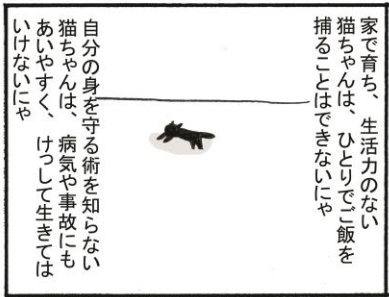 家で育ち、生活力のない
猫ちゃんは、ひとりでご飯を
捕ることはできないにゃ
自分の身を守る術を知らない
猫ちゃんは、病気や事故にも
あいやすく、けっして生きては
いけないにゃ